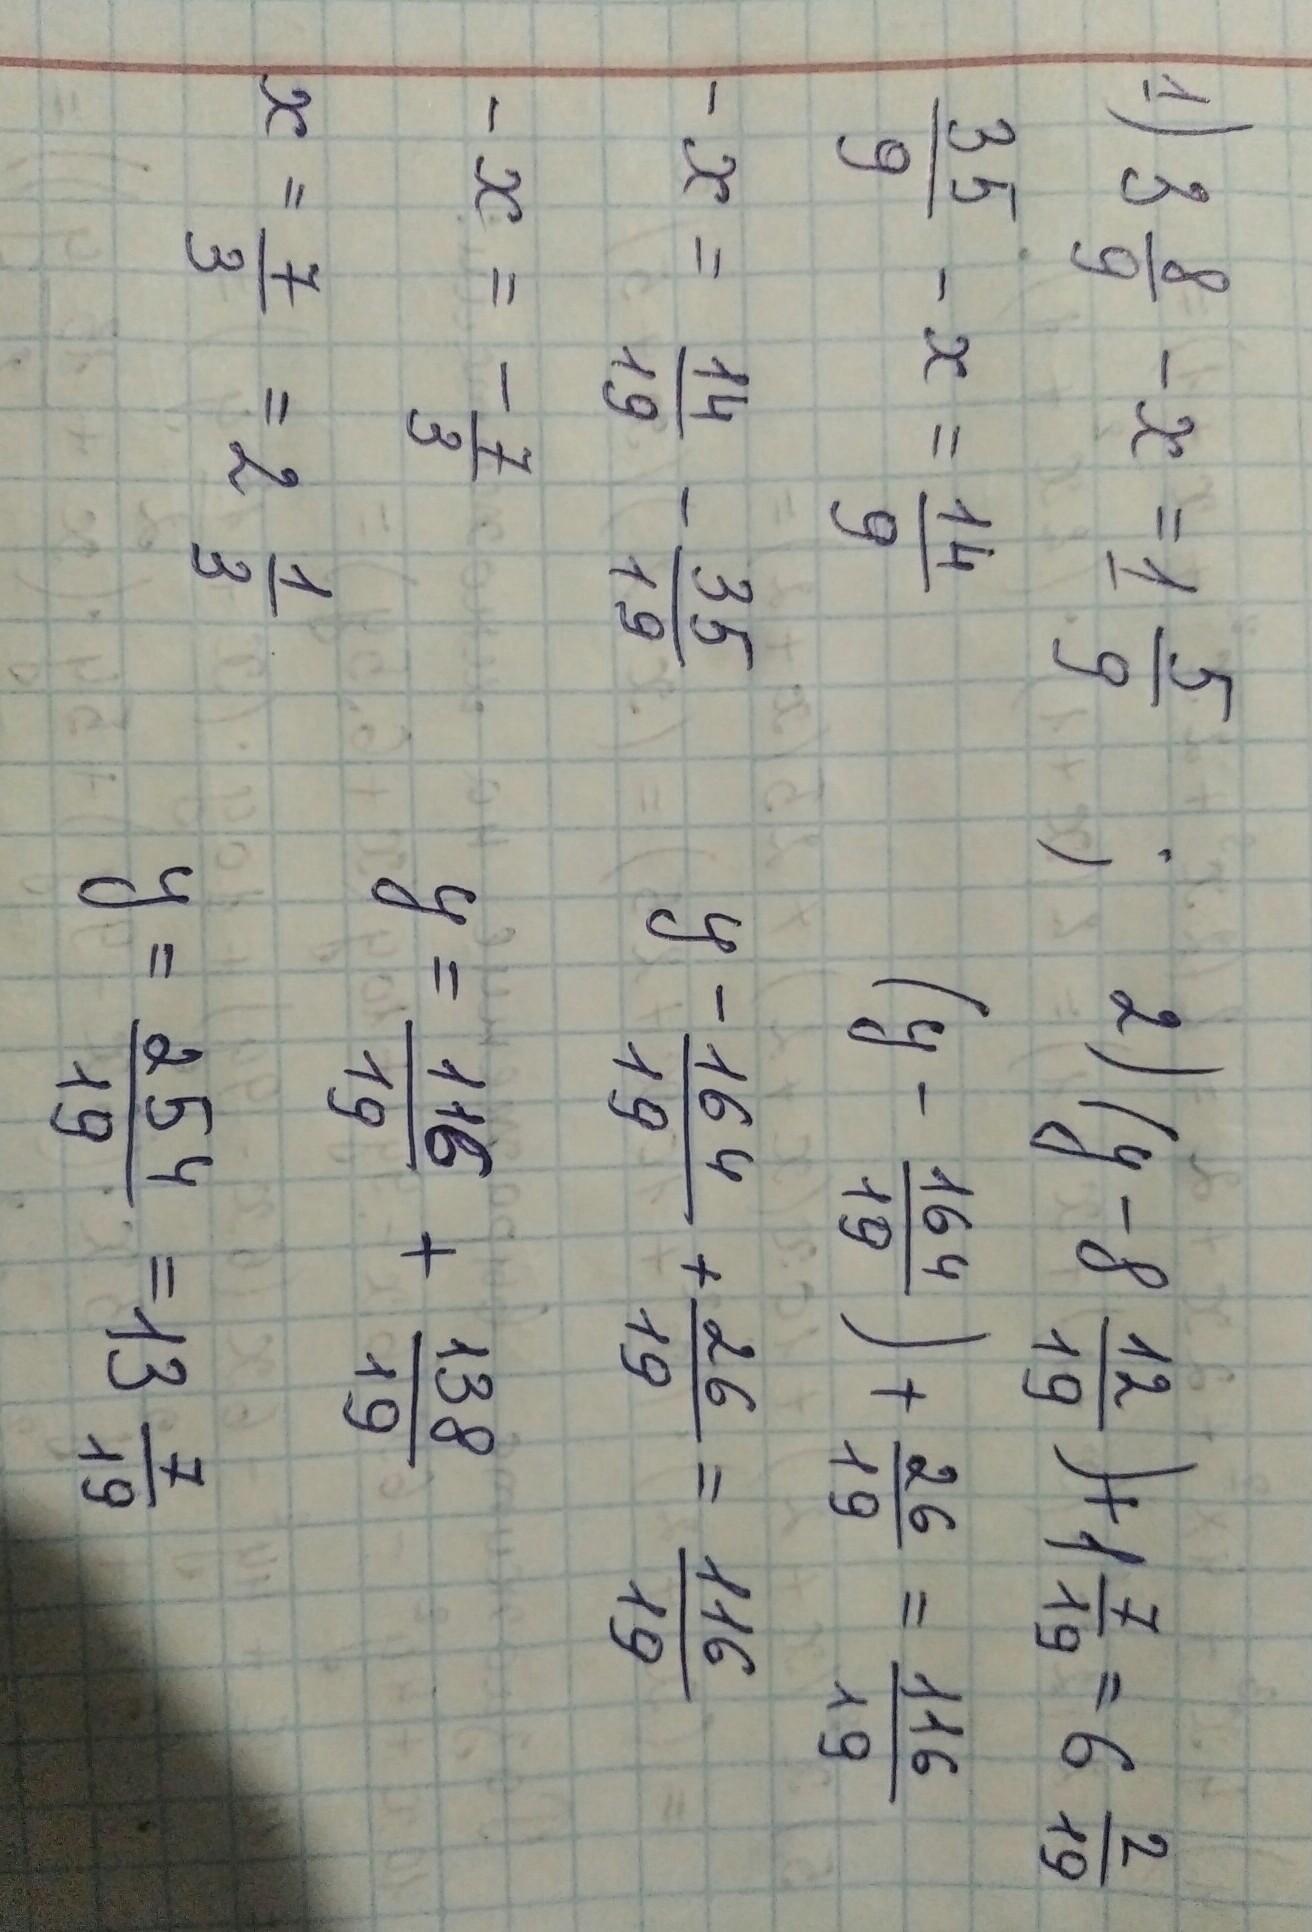 1) 3 8/9 - x = 1 5/9
35/9 - x = 14/9
- x = 14/19 - 35/19
- x = - 7/3
x = 7/3 = 2 1/3
2) (y - 8 12/19) + 1 7/19 = 6 2/19
(y - 164/19) + 26/19 = 116/19
y - 164/19 + 26/19 = 116/19
y = 116/19 + 138/19
y = 254/19 = 13 7/19